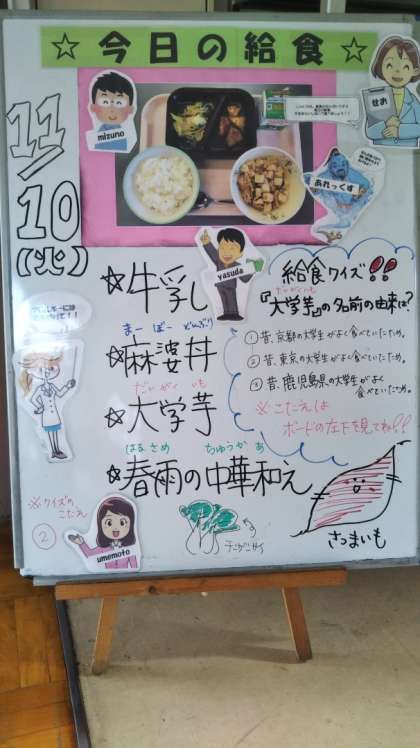 ☆今日の給食☆
11/10(火)
mizuno
せお
あれっくす
yasuda
☆牛乳
まーぼーどんぶり
☆麻婆丼
だいがくいも
☆大学芋
はるさめ ちゅうかあ
☆春雨の中華和え
給食クイズ!!
だいがくいも
『大学芋』の名前の由来は?
①昔、京都の大学生がよく食べていたため。
②昔、東京の大学生がよく食べていたため。
③昔、鹿児島県の大学生がよく
食べていたため。
※こたえは
ボードの左下を見てね!!
さつまいも
チンゲンサイ
※クイズの
こたえ
②
umemoto